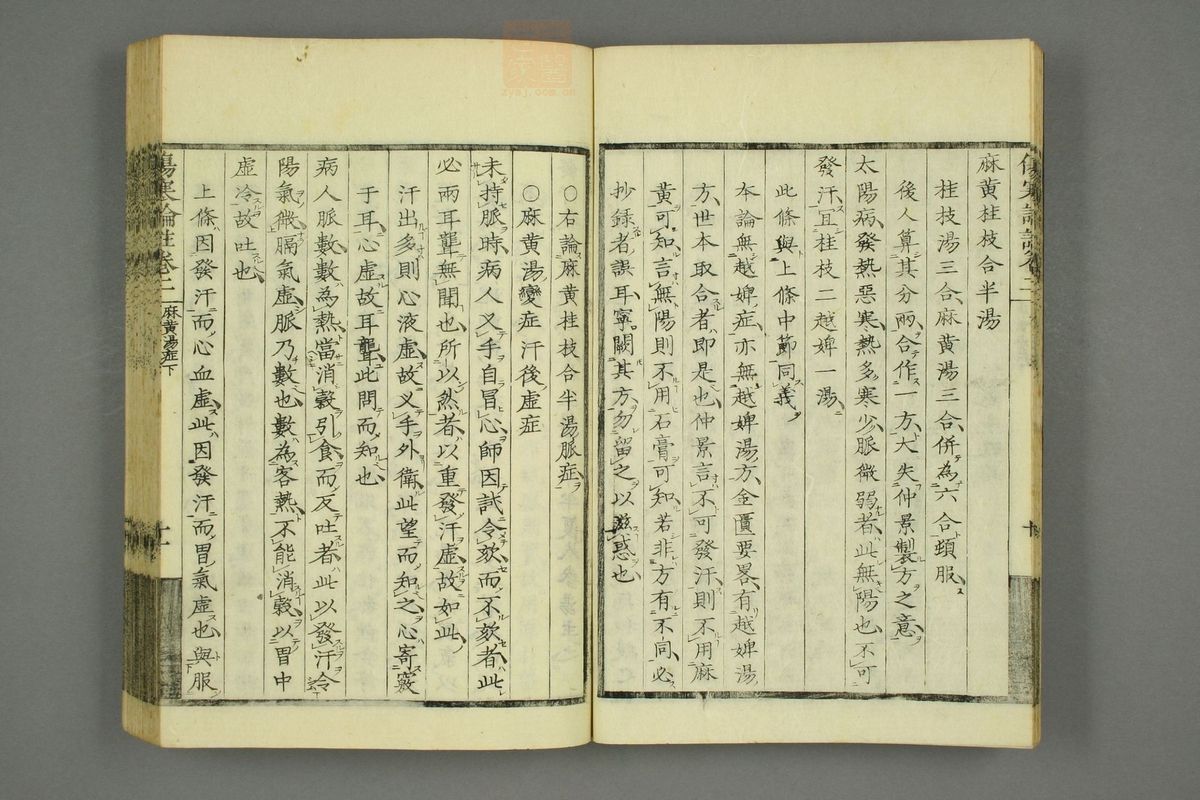 麻黄桂枝合半湯
桂枝湯三合麻黄湯三合併為六合頓服
後人算其分兩合作一方大失仲景製方之意
太陽病發熱惡寒熱多寒少脈微弱者此無陽也不可
發汗宜桂枝二越婢一湯
此條與上條中節同義
本論無越婢症亦無越婢湯方金匱要畧有越婢湯
方世本取合者即是也仲景言不可發汗則不用麻
黄可知言無陽則不用石膏可知若非方有不同必
抄録者誤耳寧闕其方勿留之以滋惑也
○右論麻黄桂枝合半湯脈症
○麻黄湯變症汗後虛症
未持脈時病人叉手自冒心師因試令欬而不欬者此
必兩耳聾無聞也所以然者以重發汗虛故如此
汗出多則心液虛故叉手外衛此望而知之心寄竅
于耳心虛故耳聾此問而知也
病人脈數數為熱當消穀引食而反吐者此以發汗令
陽氣微膈氣虛脈乃數也數為客熱不能消穀以胃中
虛冷故吐也
上條因發汗而心血虛此因發汗而胃氣虛也與服
傷寒論註卷二
麻黄湯症下
十一
zysj.com.cn